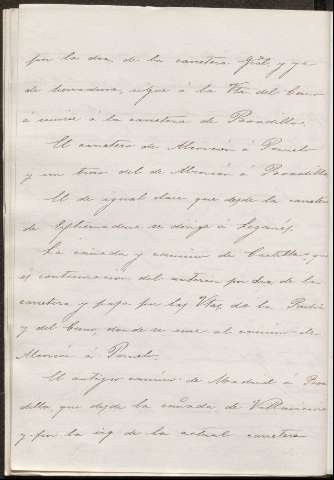 por la dra. de la carretera Gral. y ya
de herradura, sigue á la Vta. del Cano
á unirse á la carretera de Boadilla.
El carretero de Alcorcón á Pozuelo
y un trozo del de Alcorcón á Boadilla
El de igual clase que desde la carretera
de Extremadura se dirige á Leganés.
La cañada y camino de Castilla, que
es continuacion del anterior por dra. de la
carretera y pasa por las Vtas. de la
y del Cano, donde se une al camino de
Alcorcón á Pozuelo.
El antiguo camino de Madrid á Boa
dilla, que desde la cañada de
y por la izq. de la actual carretera